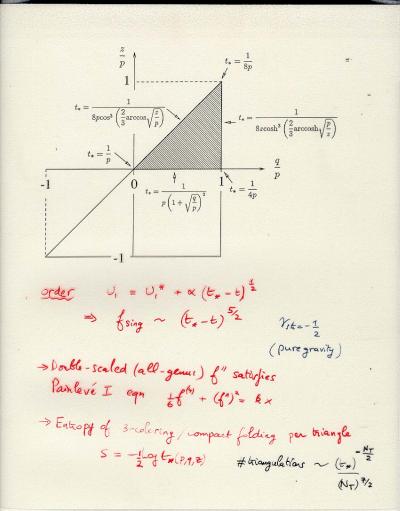 z/p
t* = 1/8p
1
t* = 1/(8p cos³(2/3 arccos √(z/p)))
t* = 1/(8z cosh³(2/3 arccosh √(p/z)))
t* = 1/p
q/p
-1
0
1
t* = 1/(p(1 + √(q/p))²)
t* = 1/4p
-1
order U₁ = U₁* + α (t* - t)^{1/2}
⇒ f_sing ~ (t* - t)^{5/2}
γ_str = -1/2
(pure gravity)
→ Double-scaled (all-genus) f" satisfies
Painlevé I eqn 1/6 f^{(4)} + (f")² = k x
→ Entropy of 3-coloring / compact folding per triangle
S = -1/2 Log t*(p,q,z)
# triangulations ~ (t*)^{-N_T/2} / (N_T)^{7/2}